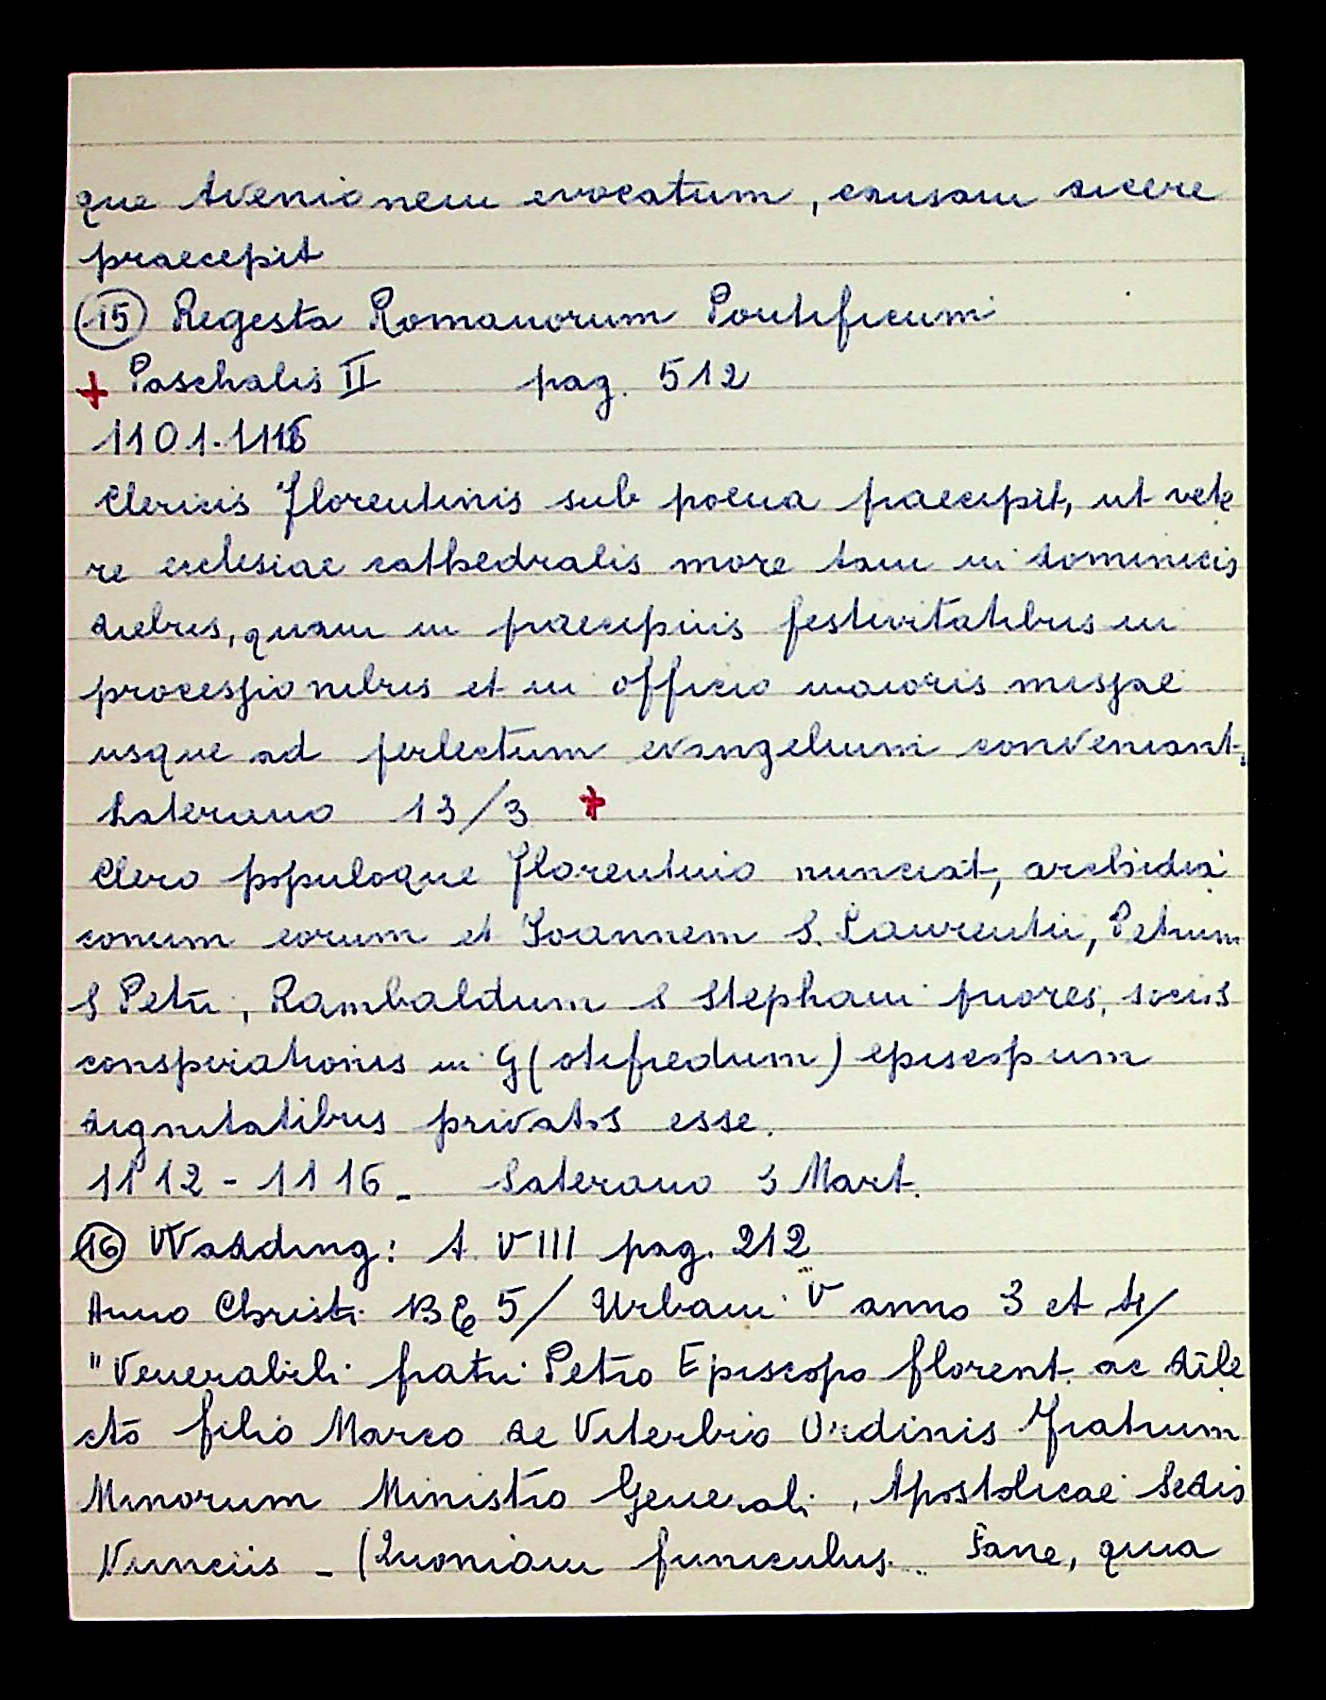 que Avenionem evocatum, causam dicere
praecepit
(15) Regesta Romanorum Pontificum
+ Paschalis II pag. 512
1101-1116
Clericis Florentinis sub poena praecepit, ut vete
re ecclesiae cathedralis more tam in dominicis
diebus, quam in praecipuis festivitatibus in
processionibus et in officio maioris missae
usque ad perlectum evangelium conveniant.
Laterano 13/3 +
Clero populoque Florentino nunciat, archidia
conum eorum et Ioannem S. Laurentii, Petrum
S Petri, Rambaldum S Stephani priores, socios
conspirationis in G(otifredum) episcopum
dignitatibus privatos esse.
1112-1116_ Laterano 3 Mart.
(16) Wadding: t. VIII pag. 212
Anno Christi 1365/ Urbani V anno 3 et 4/
"Venerabili fratri Petro Episcopo florent. ac dile
cto filio Marco de Viterbio Ordinis Fratrum
Minorum Ministro Generali, Apostolicae Sedis
Nunciis - (Quoniam funiculus... Sane, quia